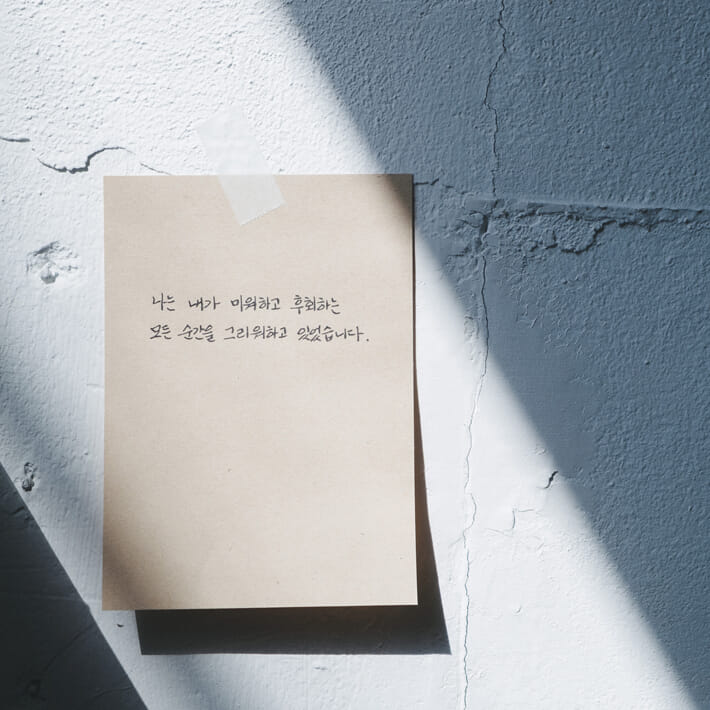 나는 내가 미워하고 후회하는
모든 순간을 그리워하고 있었습니다.